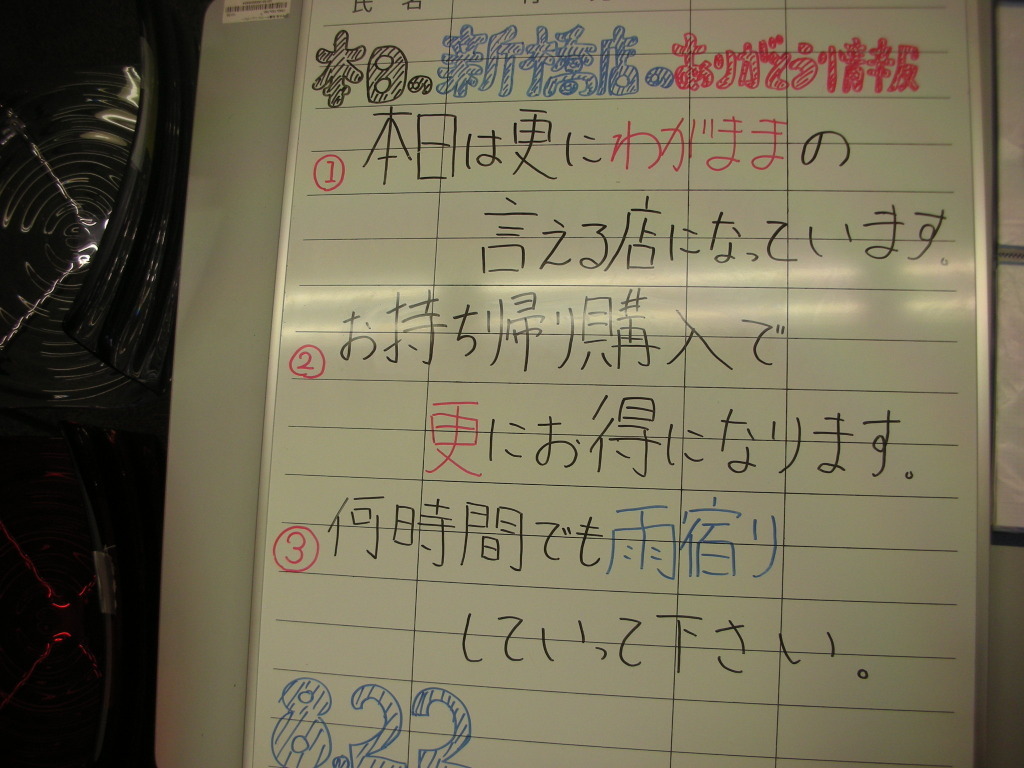 氏 名
本日の新橋店のありがとう情報
①本日は更にわがままの
言える店になっています。
②お持ち帰り購入で
更にお得になります。
③何時間でも雨宿り
していって下さい。
8.22